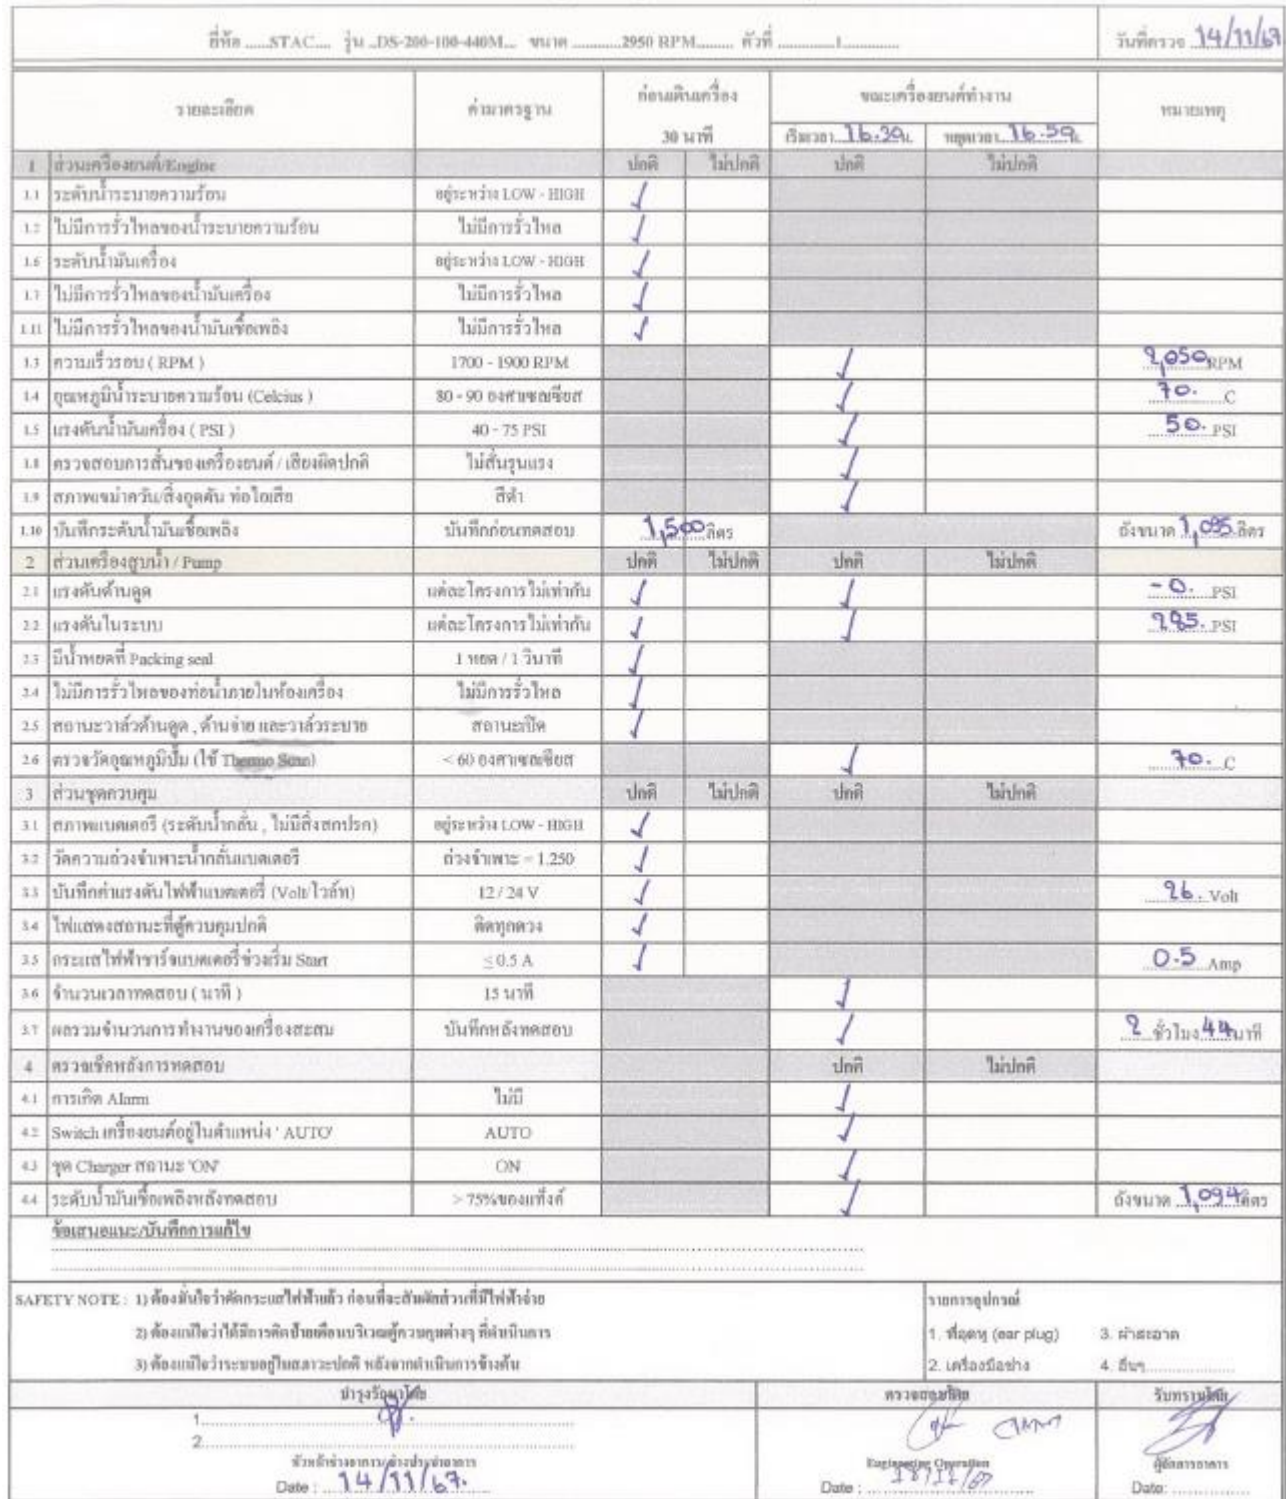 ยี่ห้อ ......STAC.... รุ่น ..DS-200-100-440M... ขนาด ............2950 RPM......... ตัวที่ .............1............. วันที่ตรวจ 14/11/67
รายละเอียด ค่ามาตรฐาน ก่อนเดินเครื่อง 30 นาที ขณะเครื่องยนต์ทำงาน หมายเหตุ
เริ่มเวลา 16.29 น. หยุดเวลา 16.59 น.
1 ส่วนเครื่องยนต์/Engine ปกติ ไม่ปกติ ปกติ ไม่ปกติ
1.1 ระดับน้ำระบายความร้อน อยู่ระหว่าง LOW - HIGH ✓
1.2 ไม่มีการรั่วไหลของน้ำระบายความร้อน ไม่มีการรั่วไหล ✓
1.6 ระดับน้ำมันเครื่อง อยู่ระหว่าง LOW - HIGH ✓
1.7 ไม่มีการรั่วไหลของน้ำมันเครื่อง ไม่มีการรั่วไหล ✓
1.11 ไม่มีการรั่วไหลของน้ำมันเชื้อเพลิง ไม่มีการรั่วไหล ✓
1.3 ความเร็วรอบ ( RPM ) 1700 - 1900 RPM ✓ 2,050 RPM
1.4 อุณหภูมิน้ำระบายความร้อน (Celcius ) 80 - 90 องศาเซลเซียส ✓ 70. C
1.5 แรงดันน้ำมันเครื่อง ( PSI ) 40 - 75 PSI ✓ 50. PSI
1.8 ตรวจสอบการสั่นของเครื่องยนต์ / เสียงผิดปกติ ไม่สั่นรุนแรง ✓
1.9 สภาพเขม่าควัน/สิ่งอุดตัน ท่อไอเสีย สีดำ ✓
1.10 บันทึกระดับน้ำมันเชื้อเพลิง บันทึกก่อนทดสอบ 1,500 ลิตร ถังขนาด 1,095 ลิตร
2 ส่วนเครื่องสูบน้ำ / Pump ปกติ ไม่ปกติ ปกติ ไม่ปกติ
2.1 แรงดันด้านดูด แต่ละโครงการไม่เท่ากัน ✓ ✓ - 0. PSI
2.2 แรงดันในระบบ แต่ละโครงการไม่เท่ากัน ✓ ✓ PSI
2.3 มีน้ำหยดที่ Packing seal 1 หยด / 1 วินาที ✓
2.4 ไม่มีการรั่วไหลของท่อน้ำภายในห้องเครื่อง ไม่มีการรั่วไหล ✓
2.5 สถานะวาล์วด้านดูด , ด้านจ่าย และวาล์วระบาย สถานะเปิด ✓
2.6 ตรวจวัดอุณหภูมิปั๊ม (ใช้ Thermo Scan) < 60 องศาเซลเซียส ✓ 70. C
3 ส่วนชุดควบคุม ปกติ ไม่ปกติ ปกติ ไม่ปกติ
3.1 สภาพแบตเตอรี่ (ระดับน้ำกลั่น , ไม่มีสิ่งสกปรก) อยู่ระหว่าง LOW - HIGH ✓
3.2 วัดความถ่วงจำเพาะน้ำกลั่นแบตเตอรี่ ถ่วงจำเพาะ = 1.250 ✓
3.3 บันทึกค่าแรงดันไฟฟ้าแบตเตอรี่ (Volt/โวล์ท) 12 / 24 V ✓ 26. Volt
3.4 ไฟแสดงสถานะที่ตู้ควบคุมปกติ ติดทุกดวง ✓
3.5 กระแสไฟฟ้าชาร์จแบตเตอรี่ช่วงเริ่ม Start ≤ 0.5 A ✓ 0.5 Amp
3.6 จำนวนเวลาทดสอบ ( นาที ) 15 นาที ✓
3.7 ผลรวมจำนวนการทำงานของเครื่องสะสม บันทึกหลังทดสอบ ✓ 2 ชั่วโมง 44 นาที
4 ตรวจเช็คหลังการทดสอบ ปกติ ไม่ปกติ
4.1 การเกิด Alarm ไม่มี ✓
4.2 Switch เครื่องยนต์อยู่ในตำแหน่ง ' AUTO' AUTO ✓
4.3 ชุด Charger สถานะ 'ON' ON ✓
4.4 ระดับน้ำมันเชื้อเพลิงหลังทดสอบ > 75%ของแท็งค์ ✓ ถังขนาด 1,094 ลิตร
ข้อเสนอแนะ/บันทึกการแก้ไข
SAFETY NOTE : 1) ต้องมั่นใจว่าตัดกระแสไฟฟ้าแล้ว ก่อนที่จะสัมผัสส่วนที่มีไฟฟ้าจ่าย รายการอุปกรณ์
2) ต้องแน่ใจว่าได้มีการติดป้ายเตือนบริเวณตู้ควบคุมต่างๆ ที่ดำเนินการ 1. ที่อุดหู (ear plug) 3. ผ้าสะอาด
3) ต้องแน่ใจว่าระบบอยู่ในสภาวะปกติ หลังจากดำเนินการข้างต้น 2. เครื่องมือช่าง 4. อื่นๆ
บำรุงรักษาโดย ตรวจสอบโดย รับทราบโดย
1.
2.
หัวหน้าช่างอาคาร/ช่างประจำอาคาร Engineering Operation ผู้จัดการอาคาร
Date : 14/11/67. Date : Date: